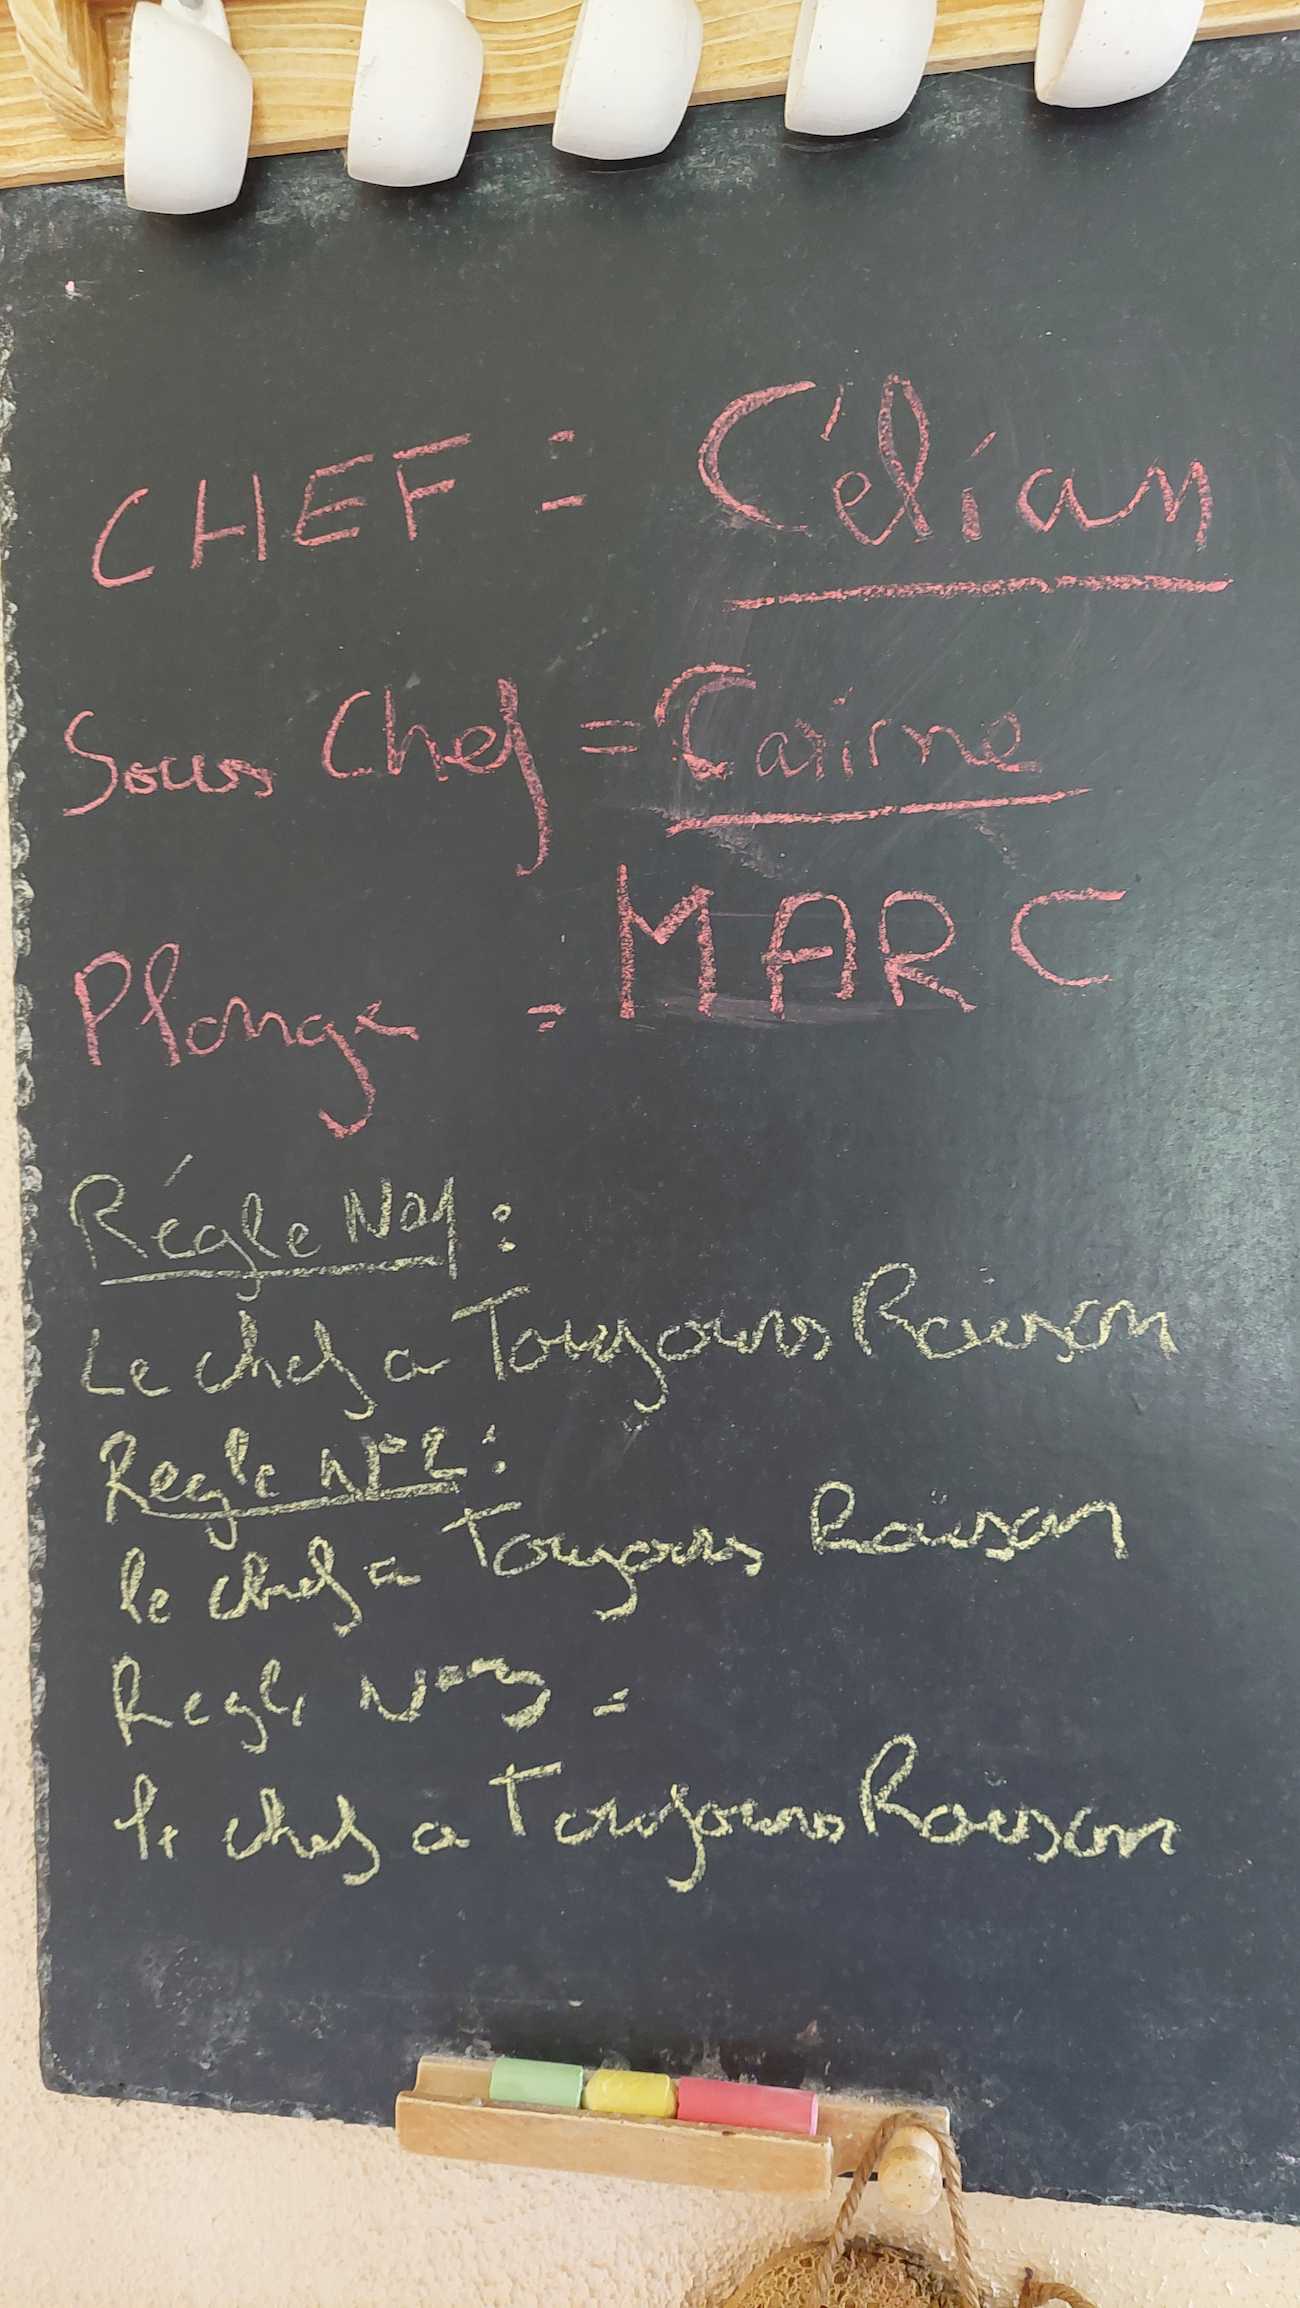 CHEF = Célian
Sous Chef = Carine
Plonge = MARC
Régle N°1 :
Le chef a Toujours Raison
Regle N°2 :
le chef a Toujours Raison
Regle N°3 =
le chef a Toujours Raison